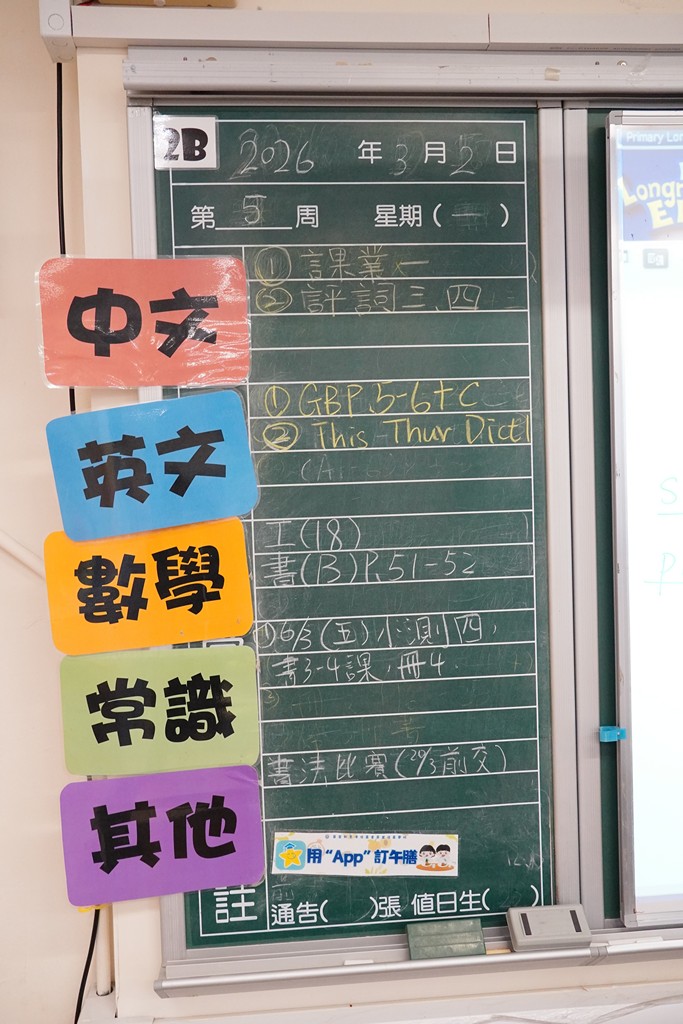 2B 2026 年 3 月 2 日
第 5 周 星期 (一)
中文
① 課業一
② 評詞三、四
英文
① GBP.5-6+C
② This Thur Dict1
數學
工(18)
書(B)P.51-52
常識
① 6/3(五)小測四,
書3-4課,冊4.
其他
書法比賽(20/3前交)
用“App”訂午膳
註 通告( )張 值日生( )
Primary Lon
Longm
E
Eg
S
P